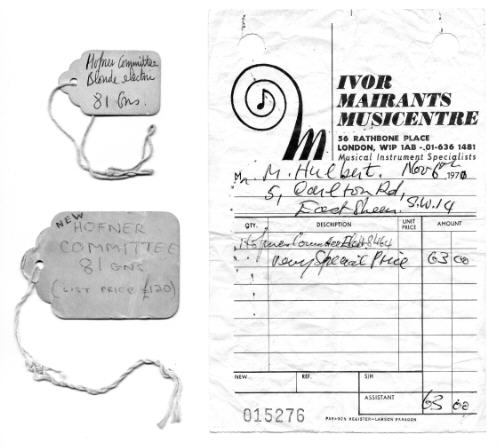 Hofner Committee
Blonde electric
81 Gns.
NEW
HOFNER
COMMITTEE
81 GNS
(LIST PRICE £120)
IVOR
MAIRANTS
MUSICENTRE
56 RATHBONE PLACE
LONDON, W1P 1AB -.01-636 1481
Musical Instrument Specialists
M. Hulbert. Nov 197
5, Carlton Rd,
East Sheen. S.W.14
QTY. DESCRIPTION UNIT PRICE AMOUNT
Hofner Committee Elect
Very Special Price 63 00
NEW... REF. S/H
ASSISTANT 63 00
015276
PARAGON REGISTER-LAMSON PARAGON